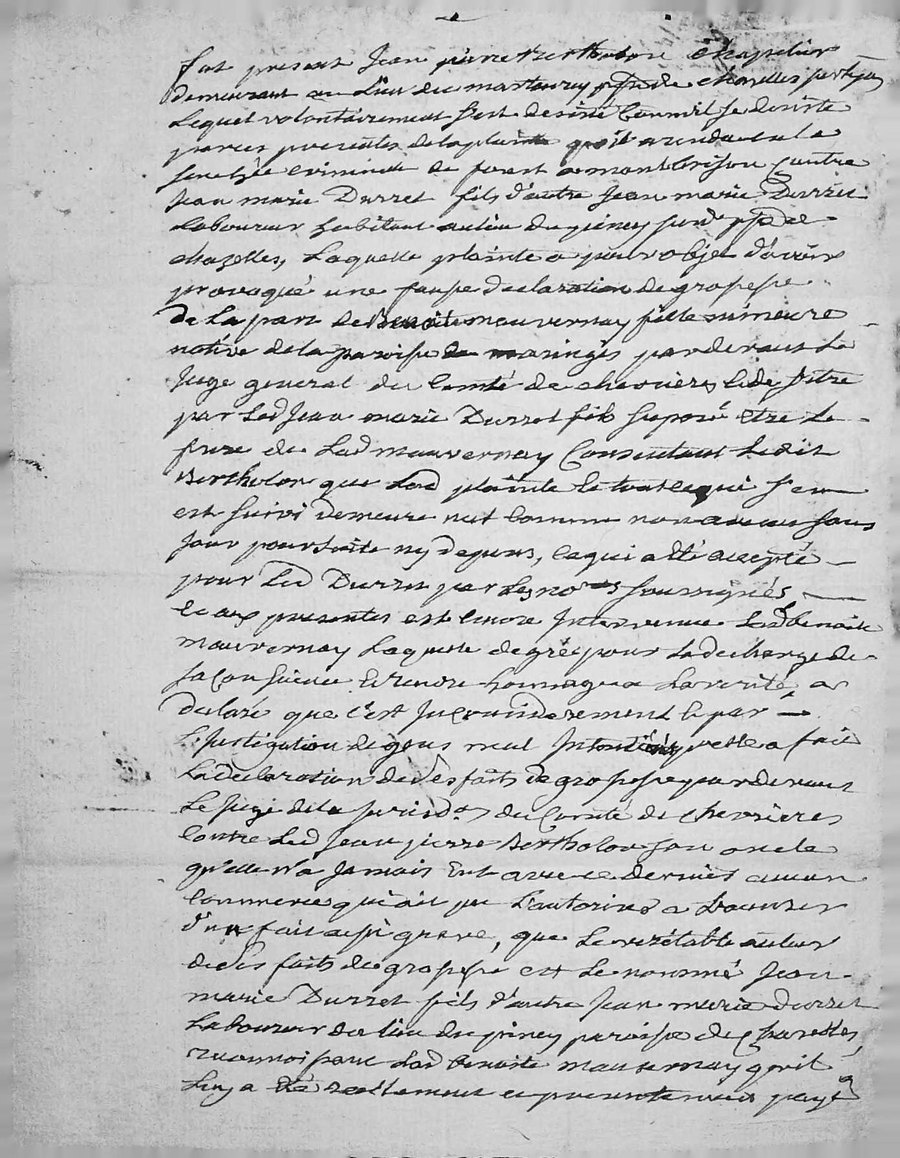 fut present Jean pierre Bertholon chapelier
demeurant au Lieu du martouray psse de chazelles sur Lyon
Lequel volontairement s'est desisté Comme il se desiste
par ces presentes de la plainte qu'il a rendue en la
senechée criminelle de forest a montbrison Contre
Jean marie Durret fils d'autre Jean marie Durret
Laboureur habitant au lieu du piney susd. psse de
chazelles, Laquelle plainte a pour objet d'avoir
provoqué une fausse declaration de grossesse
de La part de Benoite mauvernay fille mineure
native de la paroisse de maringes par devant Le
Juge general du Comté de chevrieres, Led.
par Led Jean marie Durret fils suposé etre Le
pere de Lad mauvernay Consentant Ledit
Bertholon que Lad plainte et tout ce qui s'en
est suivi demeure nul Comme non avenu sans
pour poursuite ny depens, ce qui a été accepté
pour Led Durret par Les nores soussignés
Et aux presentes est encore Intervenue Lad benoite
mauvernay Laquelle de gré pour La decharge de
sa Conscience Et rendre hommage a La verité, a
declaré que c'est Inconsiderement et par
L'instigation de gens mal Intentionés qu'elle a fait
La declaration de ses faits de grossesse par devant
Le Juge de la jurisdon du Comté de chevrieres
Contre Led Jean pierre Bertholon son oncle
qu'elle n'a Jamais Eut avec ce dernier aucun
Commerce qui ait pu L'autoriser a L'accuser
d'un fait aussi grave, que Le veritable auteur
de ses faits de grossesse est Le nommé Jean
marie Durret fils d'autre Jean marie durret
Laboureur du lieu du piney paroisse de Chazelles,
reconnoissant Lad Benoite mauvernay qu'il
Luy a été reellement et presentement payé